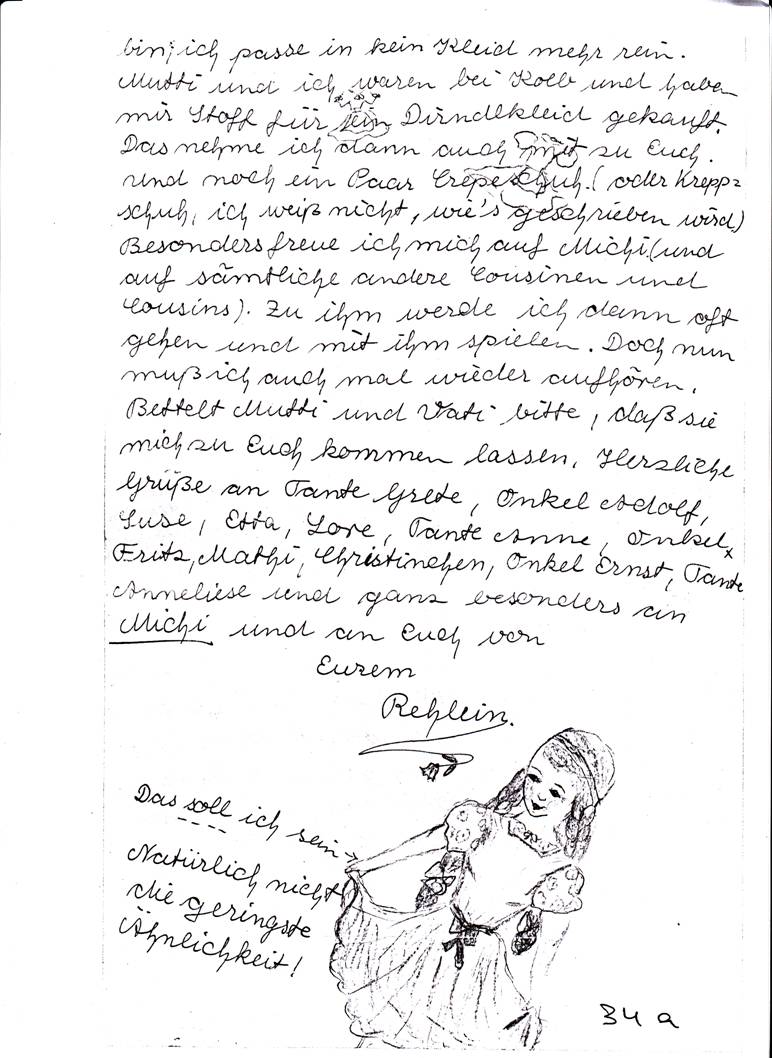 bin; ich passe in kein Kleid mehr rein.
Mutti und ich waren bei Kolb und haben
mir Stoff für ein Dirndlkleid gekauft.
Das nehme ich dann auch mit zu Euch.
Und noch ein Paar Crepeschuh. (oder Krepp=
schuh, ich weiß nicht, wie's geschrieben wird.)
Besonders freue ich mich auf Michi (und
auf sämtliche andere Cousinen und
Cousins). Zu ihm werde ich dann oft
gehen und mit ihm spielen. Doch nun
muß ich auch mal wieder aufhören.
Bettelt Mutti und Vati bitte, daß sie
mich zu Euch kommen lassen. Herzliche
Grüße an Tante Grete, Onkel Adolf,
Suse, Etta, Lore, Tante Anne, Onkel x
Fritz, Mathi, Christinchen, Onkel Ernst, Tante
Anneliese und ganz besonders an
Michi und an Euch von
Eurem
Rehlein.
Das soll ich sein →
Natürlich nicht
die geringste
Ähnlichkeit!
34 a